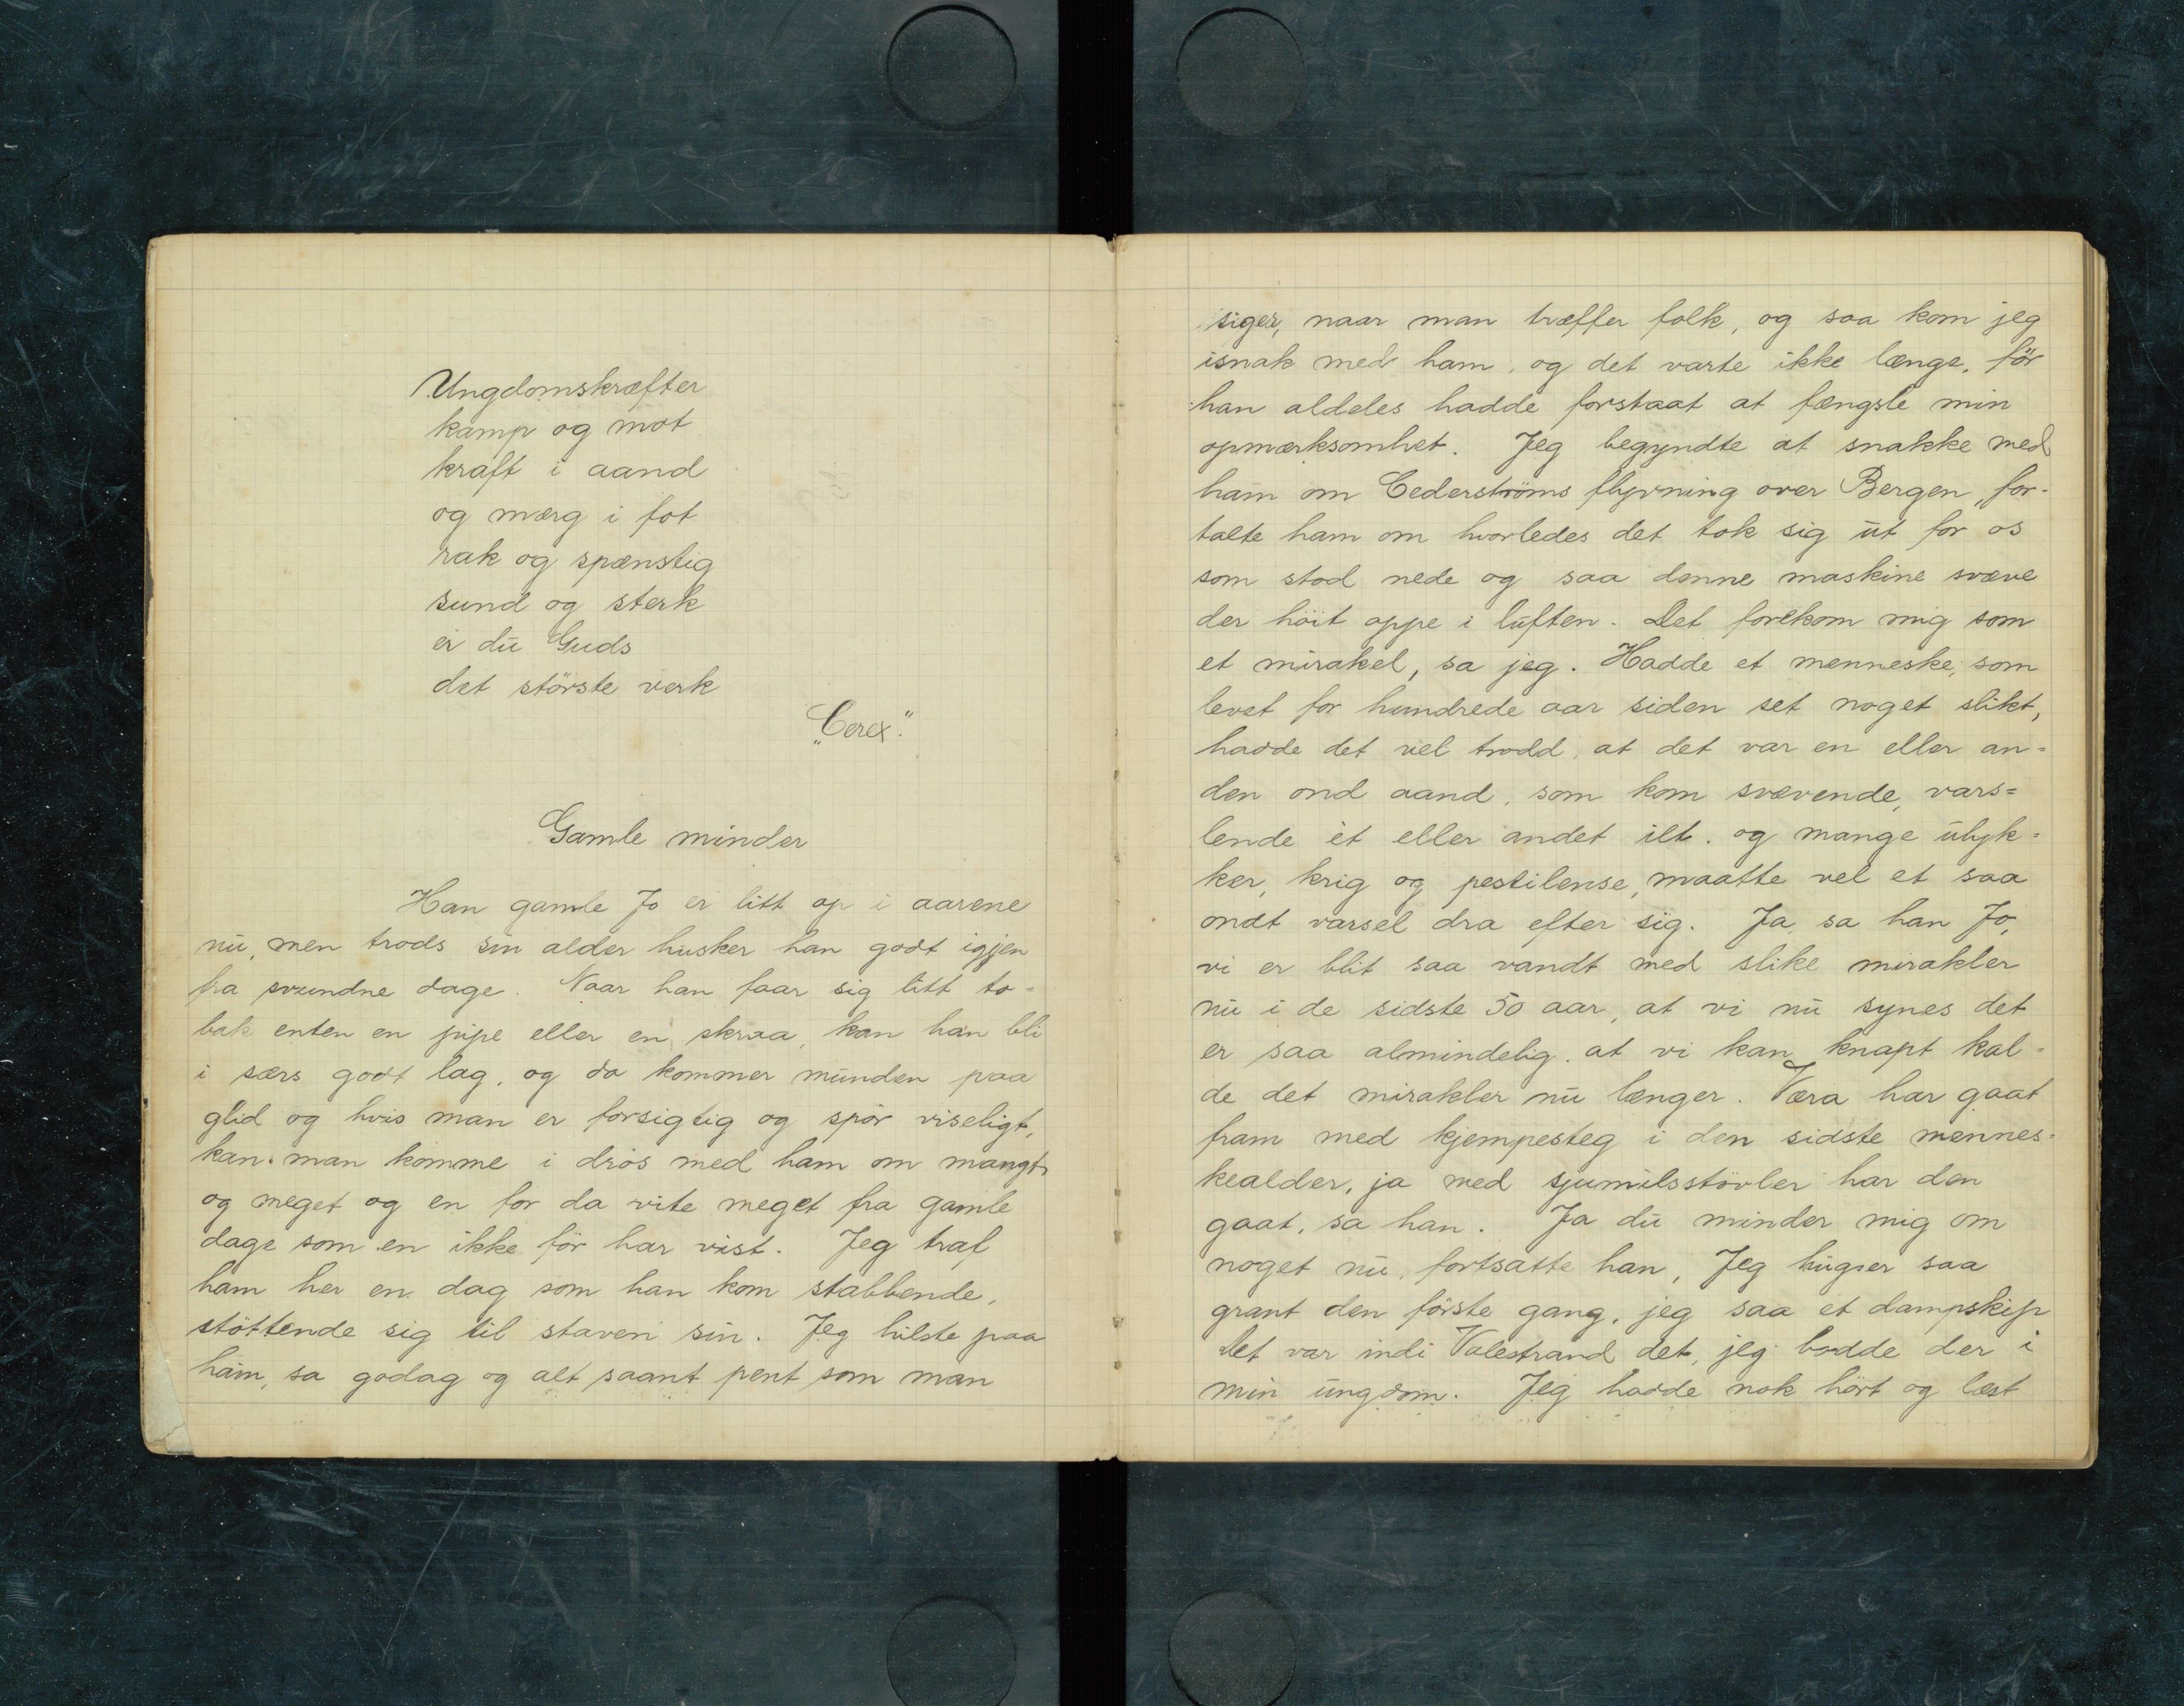 Ungdomskræfter
kamp og mot
kraft i aand
og mærg i fot
rak og spænstig
sund og sterk
er du Guds
det störste verk
„Cerex".
Gamle minder
Han gamle Jo er litt op i aarene
nu, men trods sin alder husker han godt igjen
fra svundne dage. Naar han faar sig litt to=
bak enten en pipe eller en skraa, kan han bli
i særs godt lag, og da kommer munden paa
glid og hvis man er forsigtig og spör viseligt,
kan man komme i drös med ham om mangt
og meget og en for da vite meget fra gamle
dage som en ikke för har vist. Jeg traf
ham her en dag som han kom stabbende,
stöttende sig til staven sin. Jeg hilste paa
ham, sa godag og alt saant pent som man
siger, naar man træffer folk, og saa kom jeg
isnak med ham, og det varte ikke længe, för
han aldeles hadde forstaat at fængsle min
opmærksomhet. Jeg begyndte at snakke med
ham om Cederströms flyvning over Bergen, for-
talte ham om hvorledes det tok sig ut for os
som stod nede og saa denne maskine svæve
der höit oppe i luften. Det forekom mig som
et mirakel, sa jeg. Hadde et menneske, som
levet for hundrede aar siden set noget slikt,
hadde det vel trodd, at det var en eller an=
den ond aand, som kom svævende, vars=
lende et eller andet ilt. og mange ulyk=
ker, krig og pestilense, maatte vel et saa
ondt varsel dra efter sig. Ja, sa han Jo,
vi er blit saa vandt med slike mirakler
nu i de sidste 50 aar, at vi nu synes det
er saa almindelig, at vi kan knapt kal=
de det mirakler nu længer. Væra har gaat
fram med kjempesteg i den sidste mennes=
kealder, ja med sjumilsstövler har den
gaat, sa han. Ja du minder mig om
noget nu, fortsatte han, Jeg hugser saa
grant den förste gang, jeg saa et dampskip
Det var indi Valestrand det, jeg bodde der i
min ungdom. Jeg hadde nok hört og læst